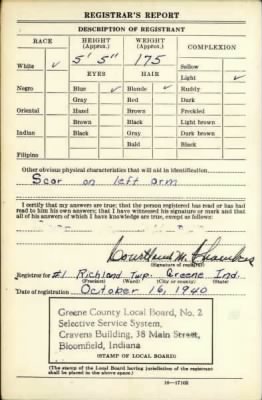 REGISTRAR'S REPORT
DESCRIPTION OF REGISTRANT
RACE HEIGHT (Approx.) WEIGHT (Approx.) COMPLEXION
White ✓ 5' 5" 175 Sallow
EYES HAIR Light ✓
Negro Blue ✓ Blonde ✓ Ruddy
Gray Red Dark
Oriental Hazel Brown Freckled
Brown Black Light brown
Indian Black Gray Dark brown
Bald Black
Filipino
Other obvious physical characteristics that will aid in identification
Scar on left arm
I certify that my answers are true; that the person registered has read or has had
read to him his own answers; that I have witnessed his signature or mark and that
all of his answers of which I have knowledge are true, except as follows:
Courtland M. Chambers
(Signature of registrar)
Registrar for #1 Richland Twp. Greene Ind.
(Precinct) (Ward) (City or county) (State)
Date of registration October 16, 1940
Greene County Local Board, No. 2
Selective Service System,
Cravens Building, 38 Main Street,
Bloomfield, Indiana
(STAMP OF LOCAL BOARD)
(The stamp of the Local Board having jurisdiction of the registrant
shall be placed in the above space.)
16—17105